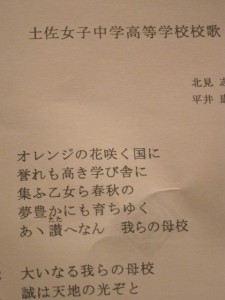 土佐女子中学高等学校校歌
北見
平井
オレンジの花咲く国に
誉れも高き学び舎に
集ふ乙女ら春秋の
夢豊かにも育ちゆく
あゝ讃へなん　我らの母校
大いなる我らの母校
誠は天地の光ぞと